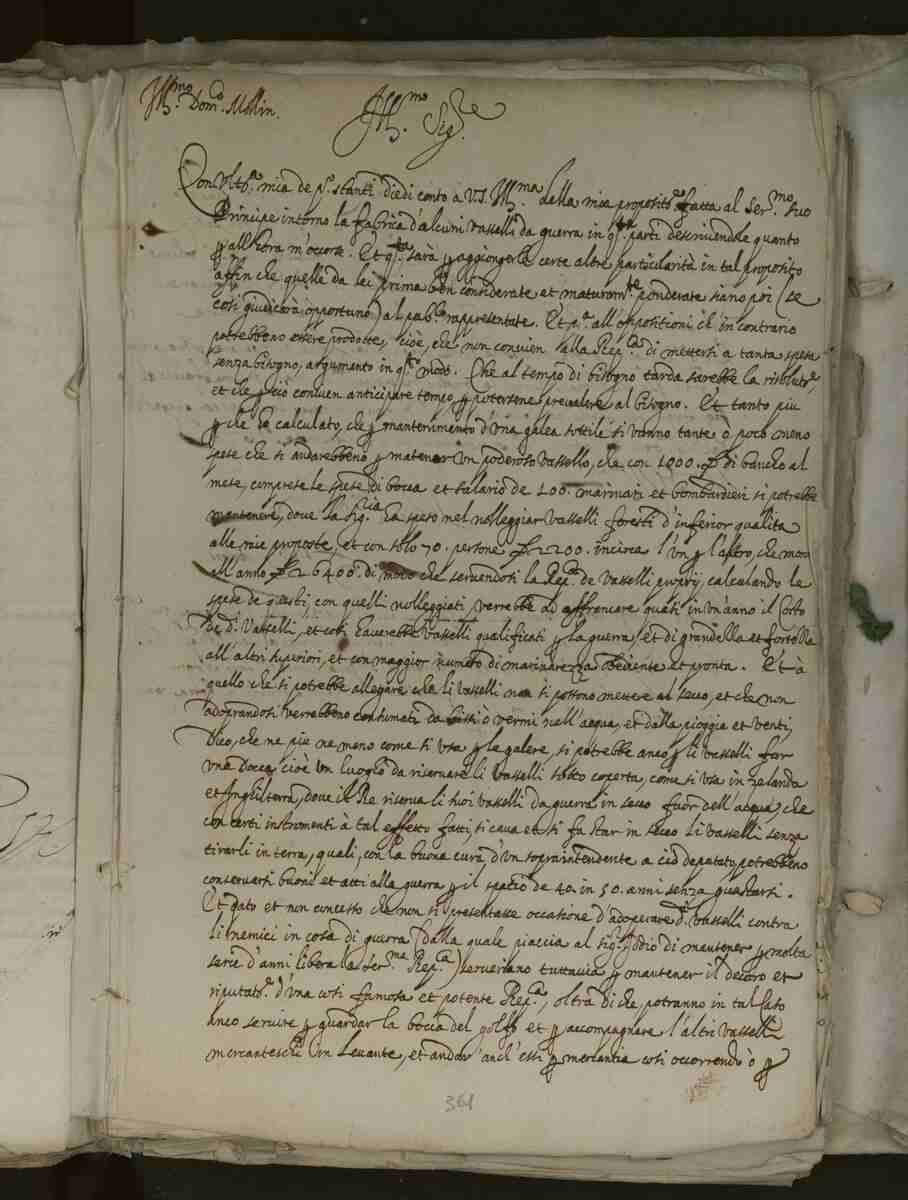 Ill.mo Dom.co Mollin.
Ill.mo Sig.re
Con l'ult.a mia de p.o stanti diedi conto a V.S. Ill.ma della mia proposit.e fatta al Ser.mo suo
Principe intorno la fabrica d'alcuni vasselli da guerra in q.te parti descrivendole quanto
p all'hora m'occorse. Et q.ta sarà p aggiongerle certe altre particularità in tal proposito
affin che quelle da lei prima ben considerate et maturam.te ponderate siano poi (se
cosi giudicarà opportuno) al pub.co rappresentate. Et p.a all'oppositioni ch' in contrario
potrebbeno essere prodotte, cioè, che non convien alla Rep.ca di mettersi a tanta spesa
senza bisogno, argumento in q.to modo. Che al tempo di bisogno tarda sarebbe la risolut.e,
et che p ciò convien anticipare tempo, p potersene prevalere al bisogno. Et tanto piu
p che ho calculato, che p mantenimento d'una galea sottile si vanno tante ò poco meno
spese che si andarebbeno p mantener un poderoso vassello, che con 1000. di bancho al
mese, comprese le spese di bocca et salario de 100. marinari et bombardieri si potrebbe
mantenere, dove la Sig.ria ha speso nel nolleggiar vasselli foresti d'inferior qualita
alle mie proposte, et con solo 70. persone 2200. incirca l'un p l'altro, che mont
all'anno 26400. di modo che servendosi la Rep.ca de vasselli proprij, calculando le
spese de questi, con quelli nolleggiati, verrebbe ad affrancare quasi in un'anno il costo
de d.i Vasselli, et cosi haverebbe vasselli qualificati p la guerra, et di grandezza et fortezza
all'altri superiori, et con maggior numero di marinarezza obediente et pronta. Et à
quello che si potrebbe allegare che li vasselli non si possono mettere al secco, et che non
adoprandosi verrebbeno consumati da bissi o vermi nell'acqua, et dalla pioggia et venti,
Dico, che ne piu ne meno come si usa p le galere, si potrebbe anco p li vasselli far
una Docca, cioè un luogho da riservare li vasselli sotto coperta, come si usa in Zelanda
et Inghilterra, dove il Re riserva li suoi vasselli da guerra in secco fuor dell'acqua, che
con certi instrumenti à tal effetto fatti, si cava et si fa star in secco li vasselli senza
tirarli in terra, quali, con la buona cura d'un sopraintendente a ciò deputato, potrebbeno
conservarsi buoni et atti alla guerra p il spacio de 40. in 50. anni senza guastarsi.
Et dato et non concesso che non si presentasse occasione d'adoperare d.i Vasselli contra
li nemici in cosa di guerra (dalla quale piaccia al Sig.r Iddio di mantener p molta
serie d'anni libera la Ser.ma Rep.ca) serveriano tuttavia p mantener il decoro et
riputat.e d'una cosi famosa et potente Rep.ca, oltra di che, potranno in tal caso
anco servire p guardar la bocca del golfo et p accompagnare l'altri vasselli
mercanteschi in Levante, et andar anch'essi p mercantia cosi occorrendo ò p
361